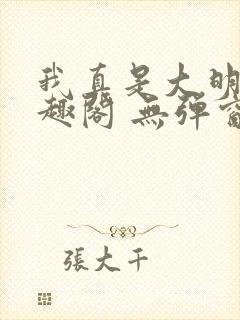 我真是大明
趣閣 無彈窗
張大千